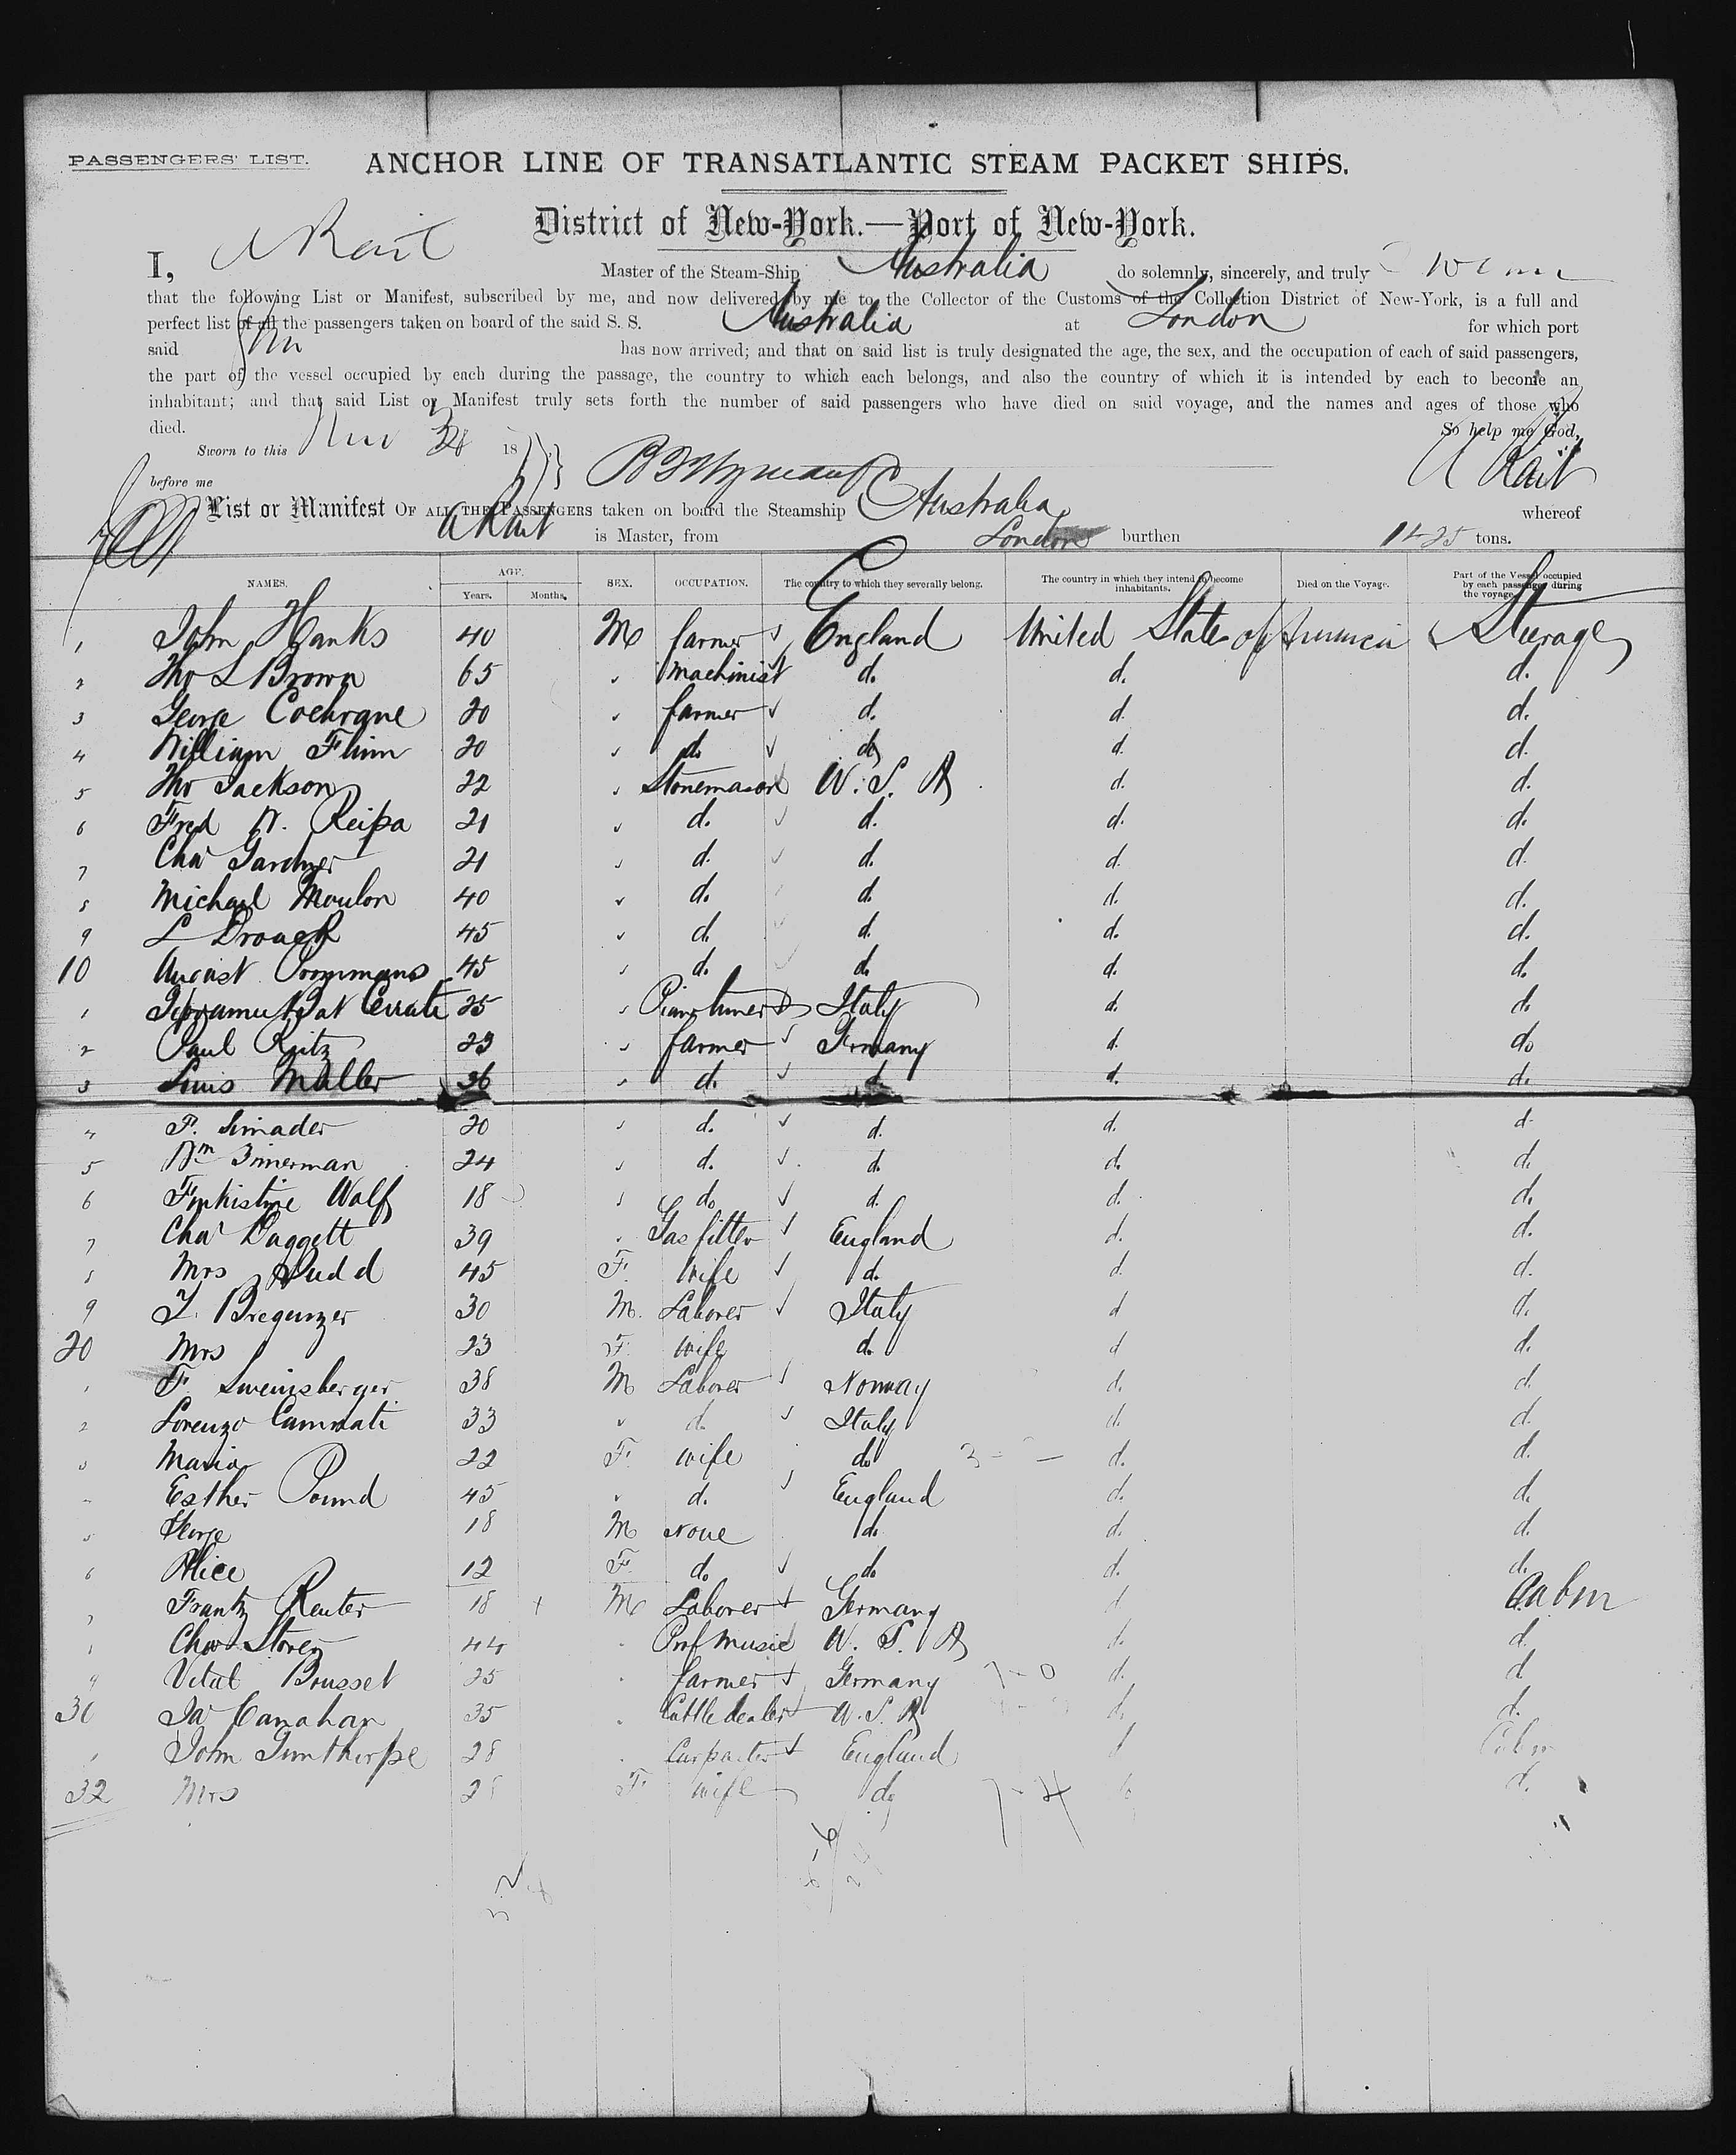 PASSENGERS' LIST.
ANCHOR LINE OF TRANSATLANTIC STEAM PACKET SHIPS.
District of New-York.—Port of New-York.
I, A Rait Master of the Steam-Ship Australia do solemnly, sincerely, and truly
that the following List or Manifest, subscribed by me, and now delivered by me to the Collector of the Customs of the Collection District of New-York, is a full and
perfect list of all the passengers taken on board of the said S. S. Australia at London for which port
said has now arrived; and that on said list is truly designated the age, the sex, and the occupation of each of said passengers,
the part of the vessel occupied by each during the passage, the country to which each belongs, and also the country of which it is intended by each to become an
inhabitant; and that said List or Manifest truly sets forth the number of said passengers who have died on said voyage, and the names and ages of those who
died. So help me God,
Sworn to this 18
before me A Rait
List or Manifest OF ALL THE PASSENGERS taken on board the Steamship Australia whereof
A Rait is Master, from London burthen 1425 tons.
NAMES. AGE. Years. Months. SEX. OCCUPATION. The country to which they severally belong. The country in which they intend to become inhabitants. Died on the Voyage. Part of the Vessel occupied by each passenger during the voyage.
1 John Hanks 40 M farmer England United State of America Steerage
2 Tho L Brown 65 " machinist d. d. d.
3 George Cochrane 20 " farmer d. d. d.
4 William Flinn 20 " do do d. d.
5 Tho Jackson 22 " Stonemason U. S. A d. d.
6 Fred W. Reipa 21 " d. d. d. d.
7 Chas Gardner 21 " d. d. d. d.
8 Michael Moulon 40 " d. d. d. d.
9 L 45 " d. d. d. d.
10 August 45 " d. d. d. d.
1 25 " Italy d. do
2 Paul Reitz 23 " farmer Germany d. do
3 Louis Muller 36 " d. d. d. d.
4 F. Simader 20 " d. d. d. d.
5 Wm Zimerman 24 " d. d. d. d.
6 Wolf 18 " do d. d. d.
7 Chas Daggett 39 " Gas fitter England d. d.
8 Mrs Judd 45 F. Wife d. d. d.
9 Bregenzer 30 M. Laborer Italy d d.
20 Mrs 23 F. wife d. d d.
1 F. Sweinsberger 38 M Laborer Norway d. d.
2 Lorenzo Cammati 33 " d. Italy d. d.
3 Maria 22 F. wife do d. d.
Esther Pound 45 " d. England d. d.
5 George 18 M None do d. d.
6 Alice 12 F. do do d. do
7 Frantz Reuter 18 M Laborer Germany d Cabin
Chas Storey 44 " Prof Music U. S. A d. d.
9 Vital Brusset 25 " farmer Germany d. d
30 Canahan 35 " Cattle dealer U. S. A d. d.
1 John Gunthorpe 28 " Carpenter England d Cabin
32 Mrs 28 F. wife do d.